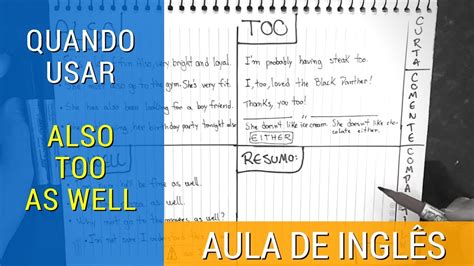 QUANDO
USAR
ALSO
TOO
AS WELL
Also, very bright and loyal.
also go to the gym. She's very fit.
She has also been looking for a boy friend.
her birthday party tonight also
TOO
I'm probably having steak too.
I, too, loved the Black Panther!
Thanks, you too!
She doesn't like ice cream. She doesn't like chocolate either.
EITHER
RESUMO:
as well.
as well.
go to the movies as well?
I'm not sure
CURTA
COMENTE
AULA DE INGLÊS